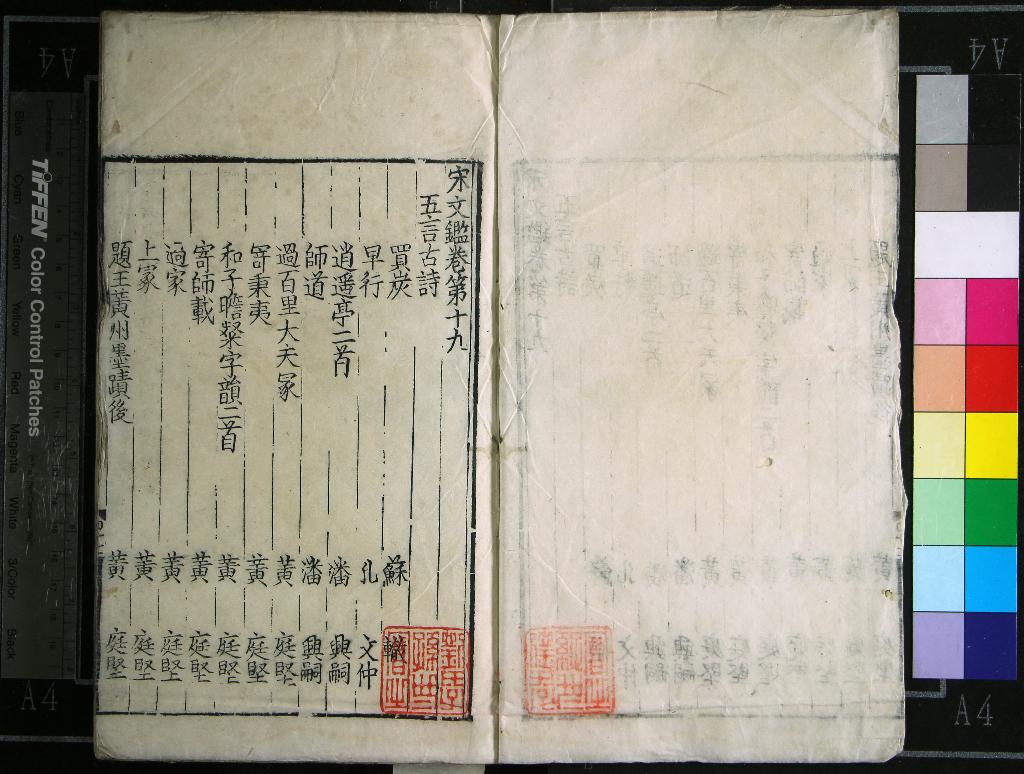 宋文鑑卷第十九
五言古詩
買炭 蘇轍
早行 孔文仲
逍遥亭二首 潘興嗣
師道 潘興嗣
過百里大夫冢 黃庭堅
寄秉夷 黃庭堅
和子瞻粲字韻二首 黃庭堅
寄師載 黃庭堅
過家 黃庭堅
上冢 黃庭堅
題王黃州墨蹟後 黃庭堅
TIFFEN Color Control Patches
Blue Cyan Green Yellow Red Magenta White 3/Color Black
A4
A4
A4
A4